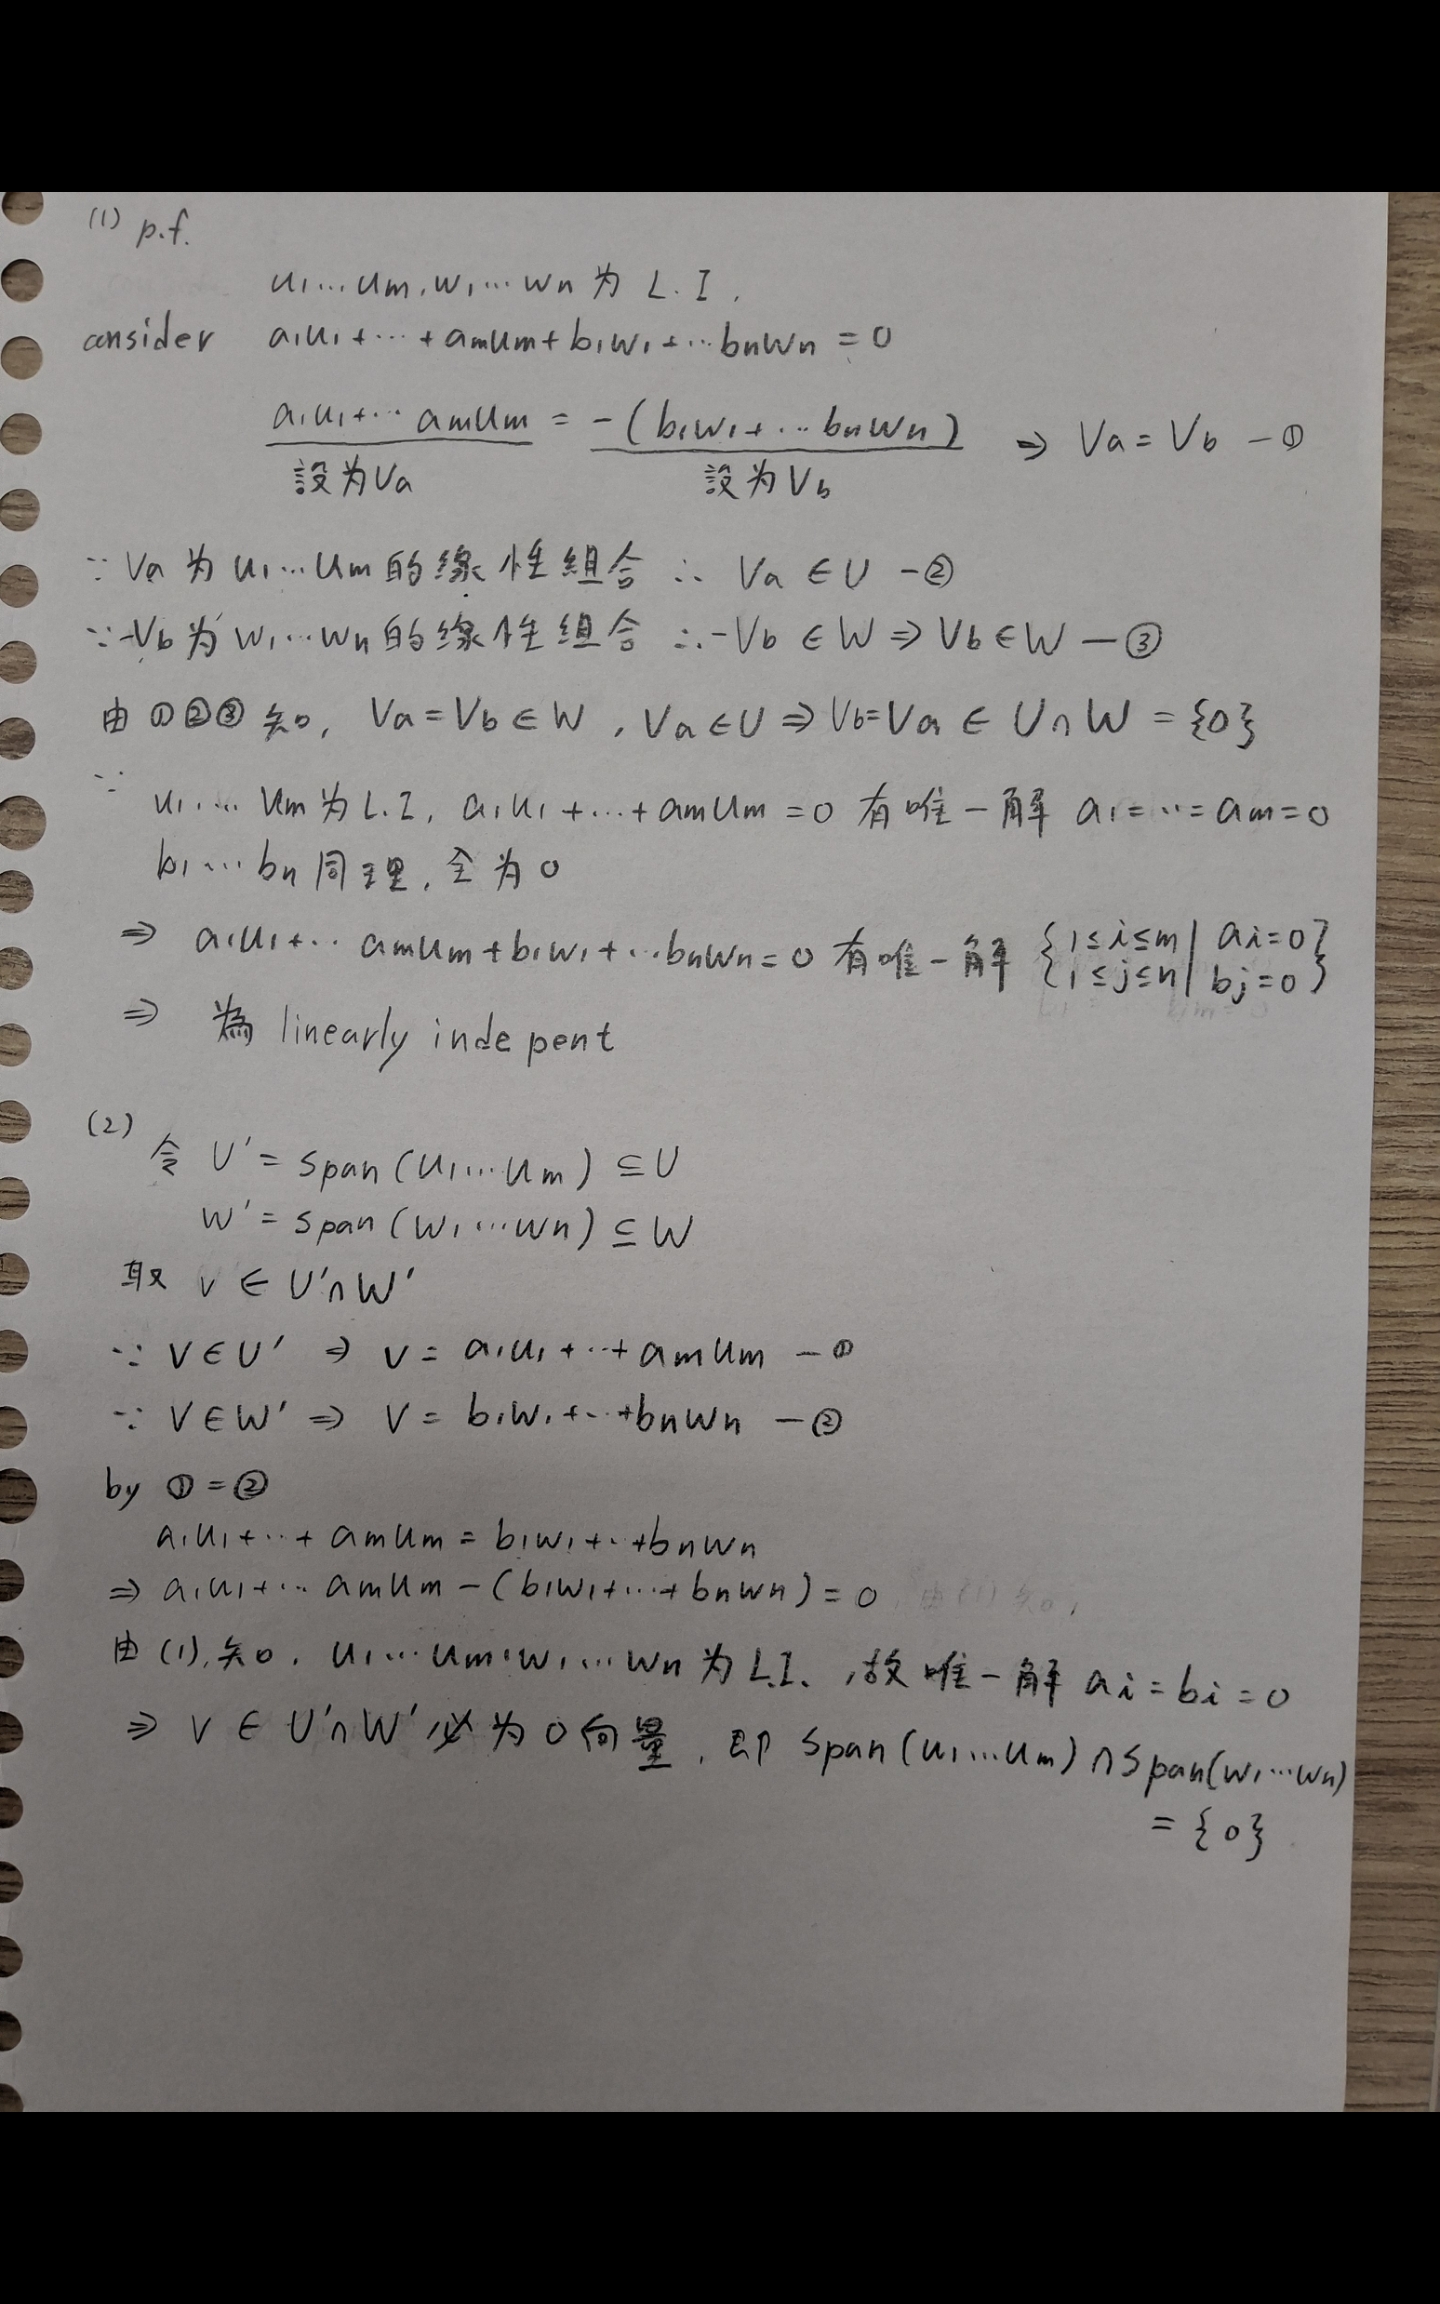 (1) p.f.
u₁…um, w₁…wn 为 L.I.
consider a₁u₁+…+amum+b₁w₁+…bnwn=0
a₁u₁+…amum = -(b₁w₁+…bnwn) ⇒ Va=Vb -①
設为Va 設为Vb
∵ Va 为 u₁…um 的線性組合 ∴ Va∈U -②
∵-Vb为 w₁…wn 的線性組合 ∴-Vb∈W⇒Vb∈W-③
由①②③知, Va=Vb∈W, Va∈U⇒Vb=Va∈U∩W={0}
∵ u₁…um为L.I, a₁u₁+…+amum=0 有唯一解 a₁=…=am=0
b₁…bn同理, 全为0
⇒ a₁u₁+…amum+b₁w₁+…bnwn=0 有唯一解 {1≤i≤m| ai=0
1≤j≤n| bj=0}
⇒ 為 linearly indepent
(2) 令 U'=span(u₁…um)⊆U
W'=span(w₁…wn)⊆W
取 v∈U'∩W'
∵ V∈U' ⇒ V=a₁u₁+…+amum -①
∵ V∈W' ⇒ V=b₁w₁+…+bnwn -②
by ①=②
a₁u₁+…+amum=b₁w₁+…+bnwn
⇒ a₁u₁+…amum-(b₁w₁+…+bnwn)=0, 由(1)知,
由(1),知, u₁…um,w₁…wn为L.I. ,故唯一解 ai=bi=0
⇒ V∈U'∩W'必为0向量, 即 span(u₁…um)∩span(w₁…wn)
={0}